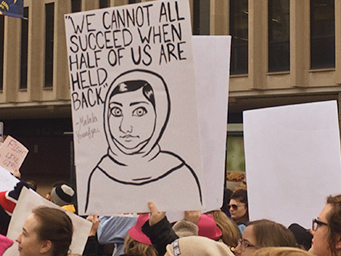 "WE CANNOT ALL
SUCCEED WHEN
HALF OF US ARE
HELD
BACK"
- Malala
Yousafzai